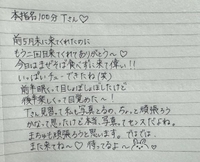 本指名100分 Tさん♡
前5月末に来てくれたのに
もう一回目来てくれてありがとう〜♡
今日はまぜそば食べずに来て偉い!!
いっぱいチューできたね(笑)
前半眠くて目しょぼしょぼしたけど
後半楽しくって目覚めた〜!
Tさん見習って私も写真とるの、ちょっと頑張ろう
かなって思ったけど本当、写真ってセンスだよね。
まちゅも頑張ろうと思います。ではでは
また来てね〜♡待ってるよ〜